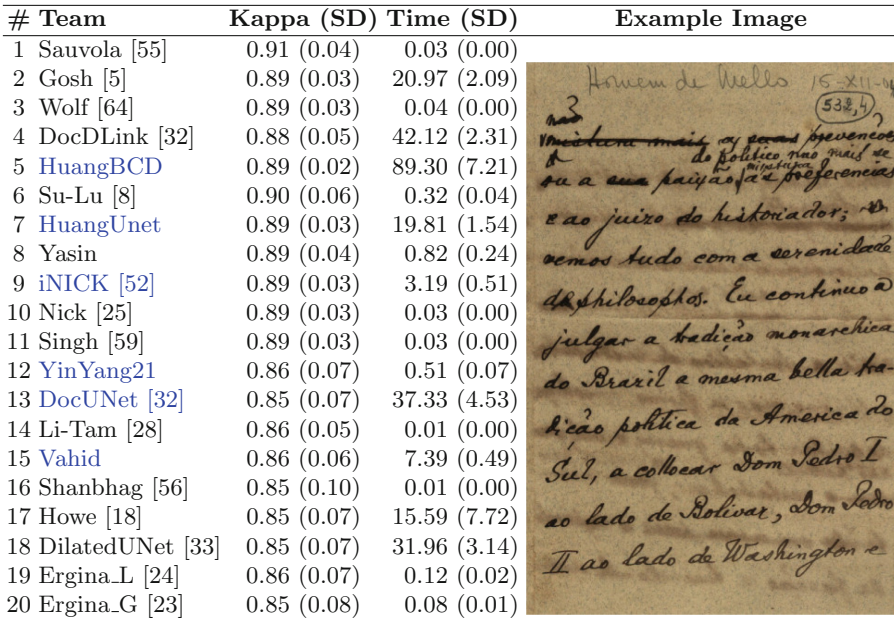 # Team Kappa (SD) Time (SD) Example Image
1 Sauvola [55] 0.91 (0.04) 0.03 (0.00)
2 Gosh [5] 0.89 (0.03) 20.97 (2.09)
3 Wolf [64] 0.89 (0.03) 0.04 (0.00)
4 DocDLink [32] 0.88 (0.05) 42.12 (2.31)
5 HuangBCD 0.89 (0.02) 89.30 (7.21)
6 Su-Lu [8] 0.90 (0.06) 0.32 (0.04)
7 HuangUnet 0.89 (0.03) 19.81 (1.54)
8 Yasin 0.89 (0.04) 0.82 (0.24)
9 iNICK [52] 0.89 (0.03) 3.19 (0.51)
10 Nick [25] 0.89 (0.03) 0.03 (0.00)
11 Singh [59] 0.89 (0.03) 0.03 (0.00)
12 YinYang21 0.86 (0.07) 0.51 (0.07)
13 DocUNet [32] 0.85 (0.07) 37.33 (4.53)
14 Li-Tam [28] 0.86 (0.05) 0.01 (0.00)
15 Vahid 0.86 (0.06) 7.39 (0.49)
16 Shanbhag [56] 0.85 (0.10) 0.01 (0.00)
17 Howe [18] 0.85 (0.07) 15.59 (7.72)
18 DilatedUNet [33] 0.85 (0.07) 31.96 (3.14)
19 Ergina_L [24] 0.86 (0.07) 0.12 (0.02)
20 Ergina_G [23] 0.85 (0.08) 0.08 (0.01)
Homem de Mello 15-XII-
3
não
mistura mais as suas prevenções
do politico não mais se
mistura
ou a sua paixão, as preferencias
e ao juizo do historiador;
vemos tudo com a serenidade
de philosophos. Eu continuo a
julgar a tradição monarchica
do Brazil a mesma bella tra-
dição politica da America do
Sul, a collocar Dom Pedro I
ao lado de Bolivar, Dom Pedro
II ao lado de Washington e